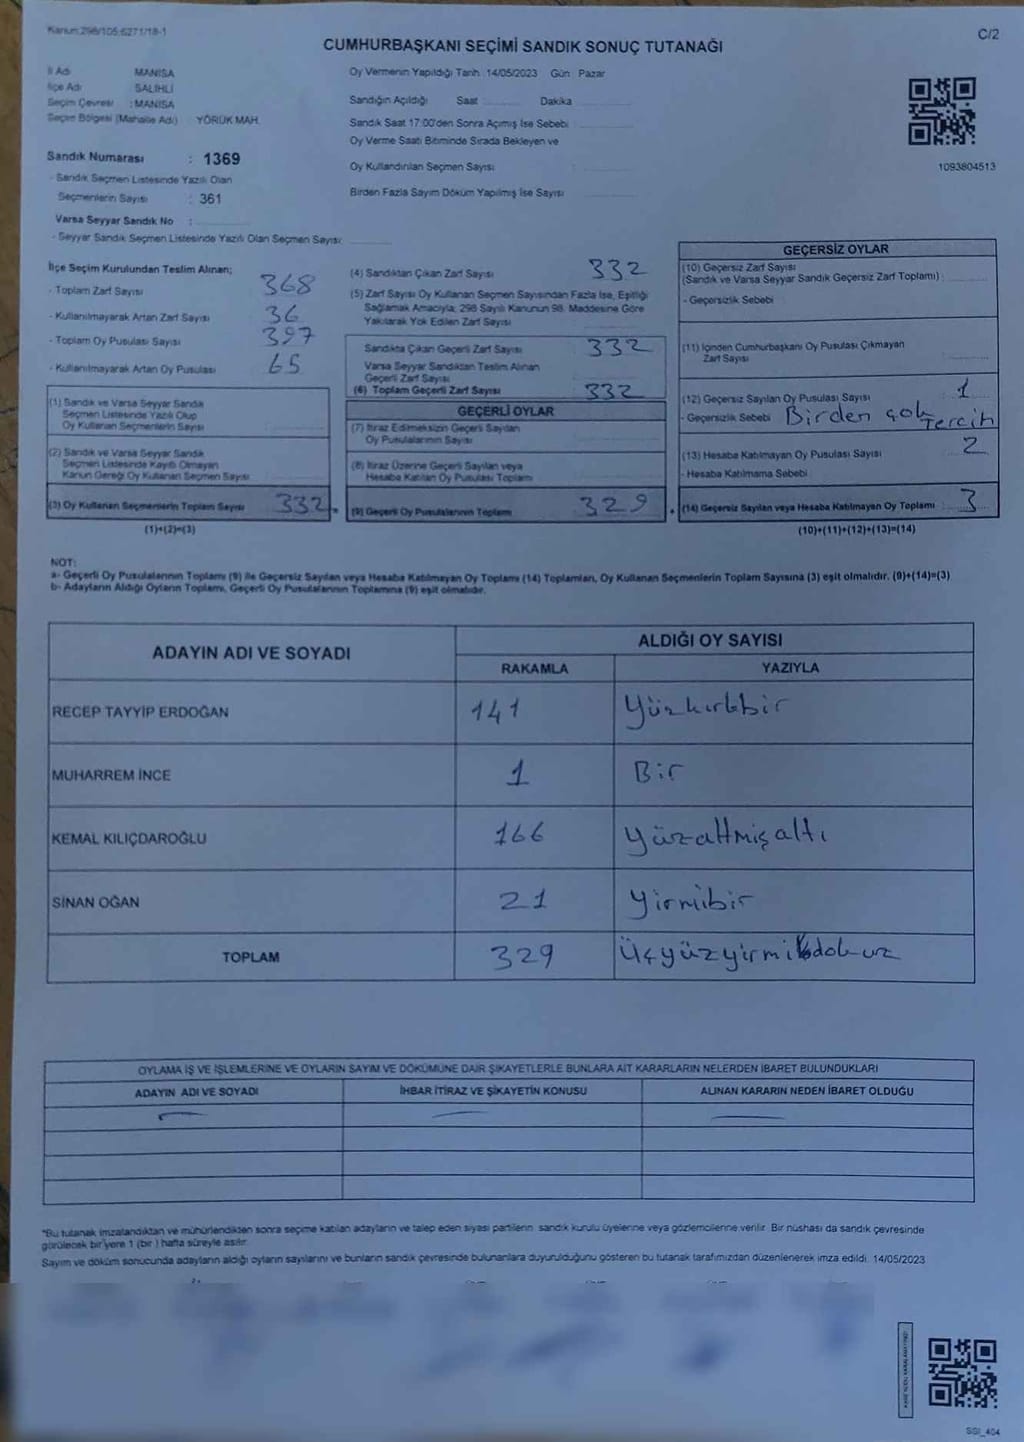 Kanun:298/105,6271/18-1
C/2
CUMHURBAŞKANI SEÇİMİ SANDIK SONUÇ TUTANAĞI
İl Adı MANİSA
İlçe Adı SALİHLİ
Seçim Çevresi : MANİSA
Seçim Bölgesi (Mahalle Adı) YÖRÜK MAH.
Sandık Numarası : 1369
- Sandık Seçmen Listesinde Yazılı Olan
Seçmenlerin Sayısı : 361
Varsa Seyyar Sandık No :
- Seyyar Sandık Seçmen Listesinde Yazılı Olan Seçmen Sayısı:
Oy Vermenin Yapıldığı Tarih :14/05/2023 Gün Pazar
Sandığın Açıldığı Saat Dakika
Sandık Saat 17:00'den Sonra Açımış İse Sebebi :
Oy Verme Saati Bitiminde Sırada Bekleyen ve
Oy Kullandırılan Seçmen Sayısı :
Birden Fazla Sayım Döküm Yapılmış İse Sayısı :
1093804513
İlçe Seçim Kurulundan Teslim Alınan;
- Toplam Zarf Sayısı 368
- Kullanılmayarak Artan Zarf Sayısı 36
- Toplam Oy Pusulası Sayısı 397
- Kullanılmayarak Artan Oy Pusulası 65
(1) Sandık ve Varsa Seyyar Sandık
Seçmen Listesinde Yazılı Olup
Oy Kullanan Seçmenlerin Sayısı :
(2) Sandık ve Varsa Seyyar Sandık
Seçmen Listesinde Kayıtlı Olmayan
Kanun Gereği Oy Kullanan Seçmen Sayısı
(3) Oy Kullanan Seçmenlerin Toplam Sayısı 332
(1)+(2)=(3)
(4) Sandıktan Çıkan Zarf Sayısı 332
(5) Zarf Sayısı Oy Kullanan Seçmen Sayısından Fazla İse, Eşitliği
Sağlamak Amacıyla; 298 Sayılı Kanunun 98. Maddesine Göre
Yakılarak Yok Edilen Zarf Sayısı
Sandıkta Çıkan Geçerli Zarf Sayısı 332
Varsa Seyyar Sandıktan Teslim Alınan
Geçerli Zarf Sayısı
(6) Toplam Geçerli Zarf Sayısı 332
GEÇERLİ OYLAR
(7) İtiraz Edilmeksizin Geçerli Sayılan
Oy Pusulalarının Sayısı
(8) İtiraz Üzerine Geçerli Sayılan veya
Hesaba Katılan Oy Pusulası Toplamı
(9) Geçerli Oy Pusulalarının Toplamı 329
GEÇERSİZ OYLAR
(10) Geçersiz Zarf Sayısı
(Sandık ve Varsa Seyyar Sandık Geçersiz Zarf Toplamı) :
- Geçersizlik Sebebi
(11) İçinden Cumhurbaşkanı Oy Pusulası Çıkmayan
Zarf Sayısı
(12) Geçersiz Sayılan Oy Pusulası Sayısı 1
- Geçersizlik Sebebi Birden çok tercih
(13) Hesaba Katılmayan Oy Pusulası Sayısı 2
- Hesaba Katılmama Sebebi
(14) Geçersiz Sayılan veya Hesaba Katılmayan Oy Toplamı 3
(10)+(11)+(12)+(13)=(14)
NOT:
a- Geçerli Oy Pusulalarının Toplamı (9) ile Geçersiz Sayılan veya Hesaba Katılmayan Oy Toplamı (14) Toplamları, Oy Kullanan Seçmenlerin Toplam Sayısına (3) eşit olmalıdır. (9)+(14)=(3)
b- Adayların Aldığı Oyların Toplamı, Geçerli Oy Pusulalarının Toplamına (9) eşit olmalıdır.
ADAYIN ADI VE SOYADI ALDIĞI OY SAYISI
RAKAMLA YAZIYLA
RECEP TAYYİP ERDOĞAN 141 Yüzkırkbir
MUHARREM İNCE 1 Bir
KEMAL KILIÇDAROĞLU 166 Yüzaltmışaltı
SİNAN OĞAN 21 Yirmibir
TOPLAM 329 Üçyüzyirmidokuz
OYLAMA İŞ VE İŞLEMLERİNE VE OYLARIN SAYIM VE DÖKÜMÜNE DAİR ŞİKAYETLERLE BUNLARA AİT KARARLARIN NELERDEN İBARET BULUNDUKLARI
ADAYIN ADI VE SOYADI İHBAR İTİRAZ VE ŞİKAYETİN KONUSU ALINAN KARARIN NEDEN İBARET OLDUĞU
*Bu tutanak imzalandıktan ve mühürlendikten sonra seçime katılan adayların ve talep eden siyasi partilerin sandık kurulu üyelerine veya gözlemcilerine verilir. Bir nüshası da sandık çevresinde
görülecek bir yere 1 (bir ) hafta süreyle asılır.
Sayım ve döküm sonucunda adayların aldığı oyların sayılarını ve bunların sandık çevresinde bulunanlara duyurulduğunu gösteren bu tutanak tarafımızdan düzenlenerek imza edildi. 14/05/2023
SGI_404